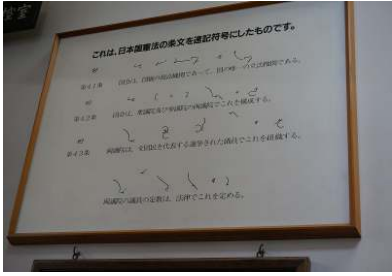 これは、日本国憲法の条文を速記符号にしたものです。
第41条
国会は、国権の最高機関であって、国の唯一の立法機関である。
第42条
国会は、衆議院及び参議院の両議院でこれを構成する。
第43条
両議院は、全国民を代表する選挙された議員でこれを組織する。
両議院の議員の定数は、法律でこれを定める。